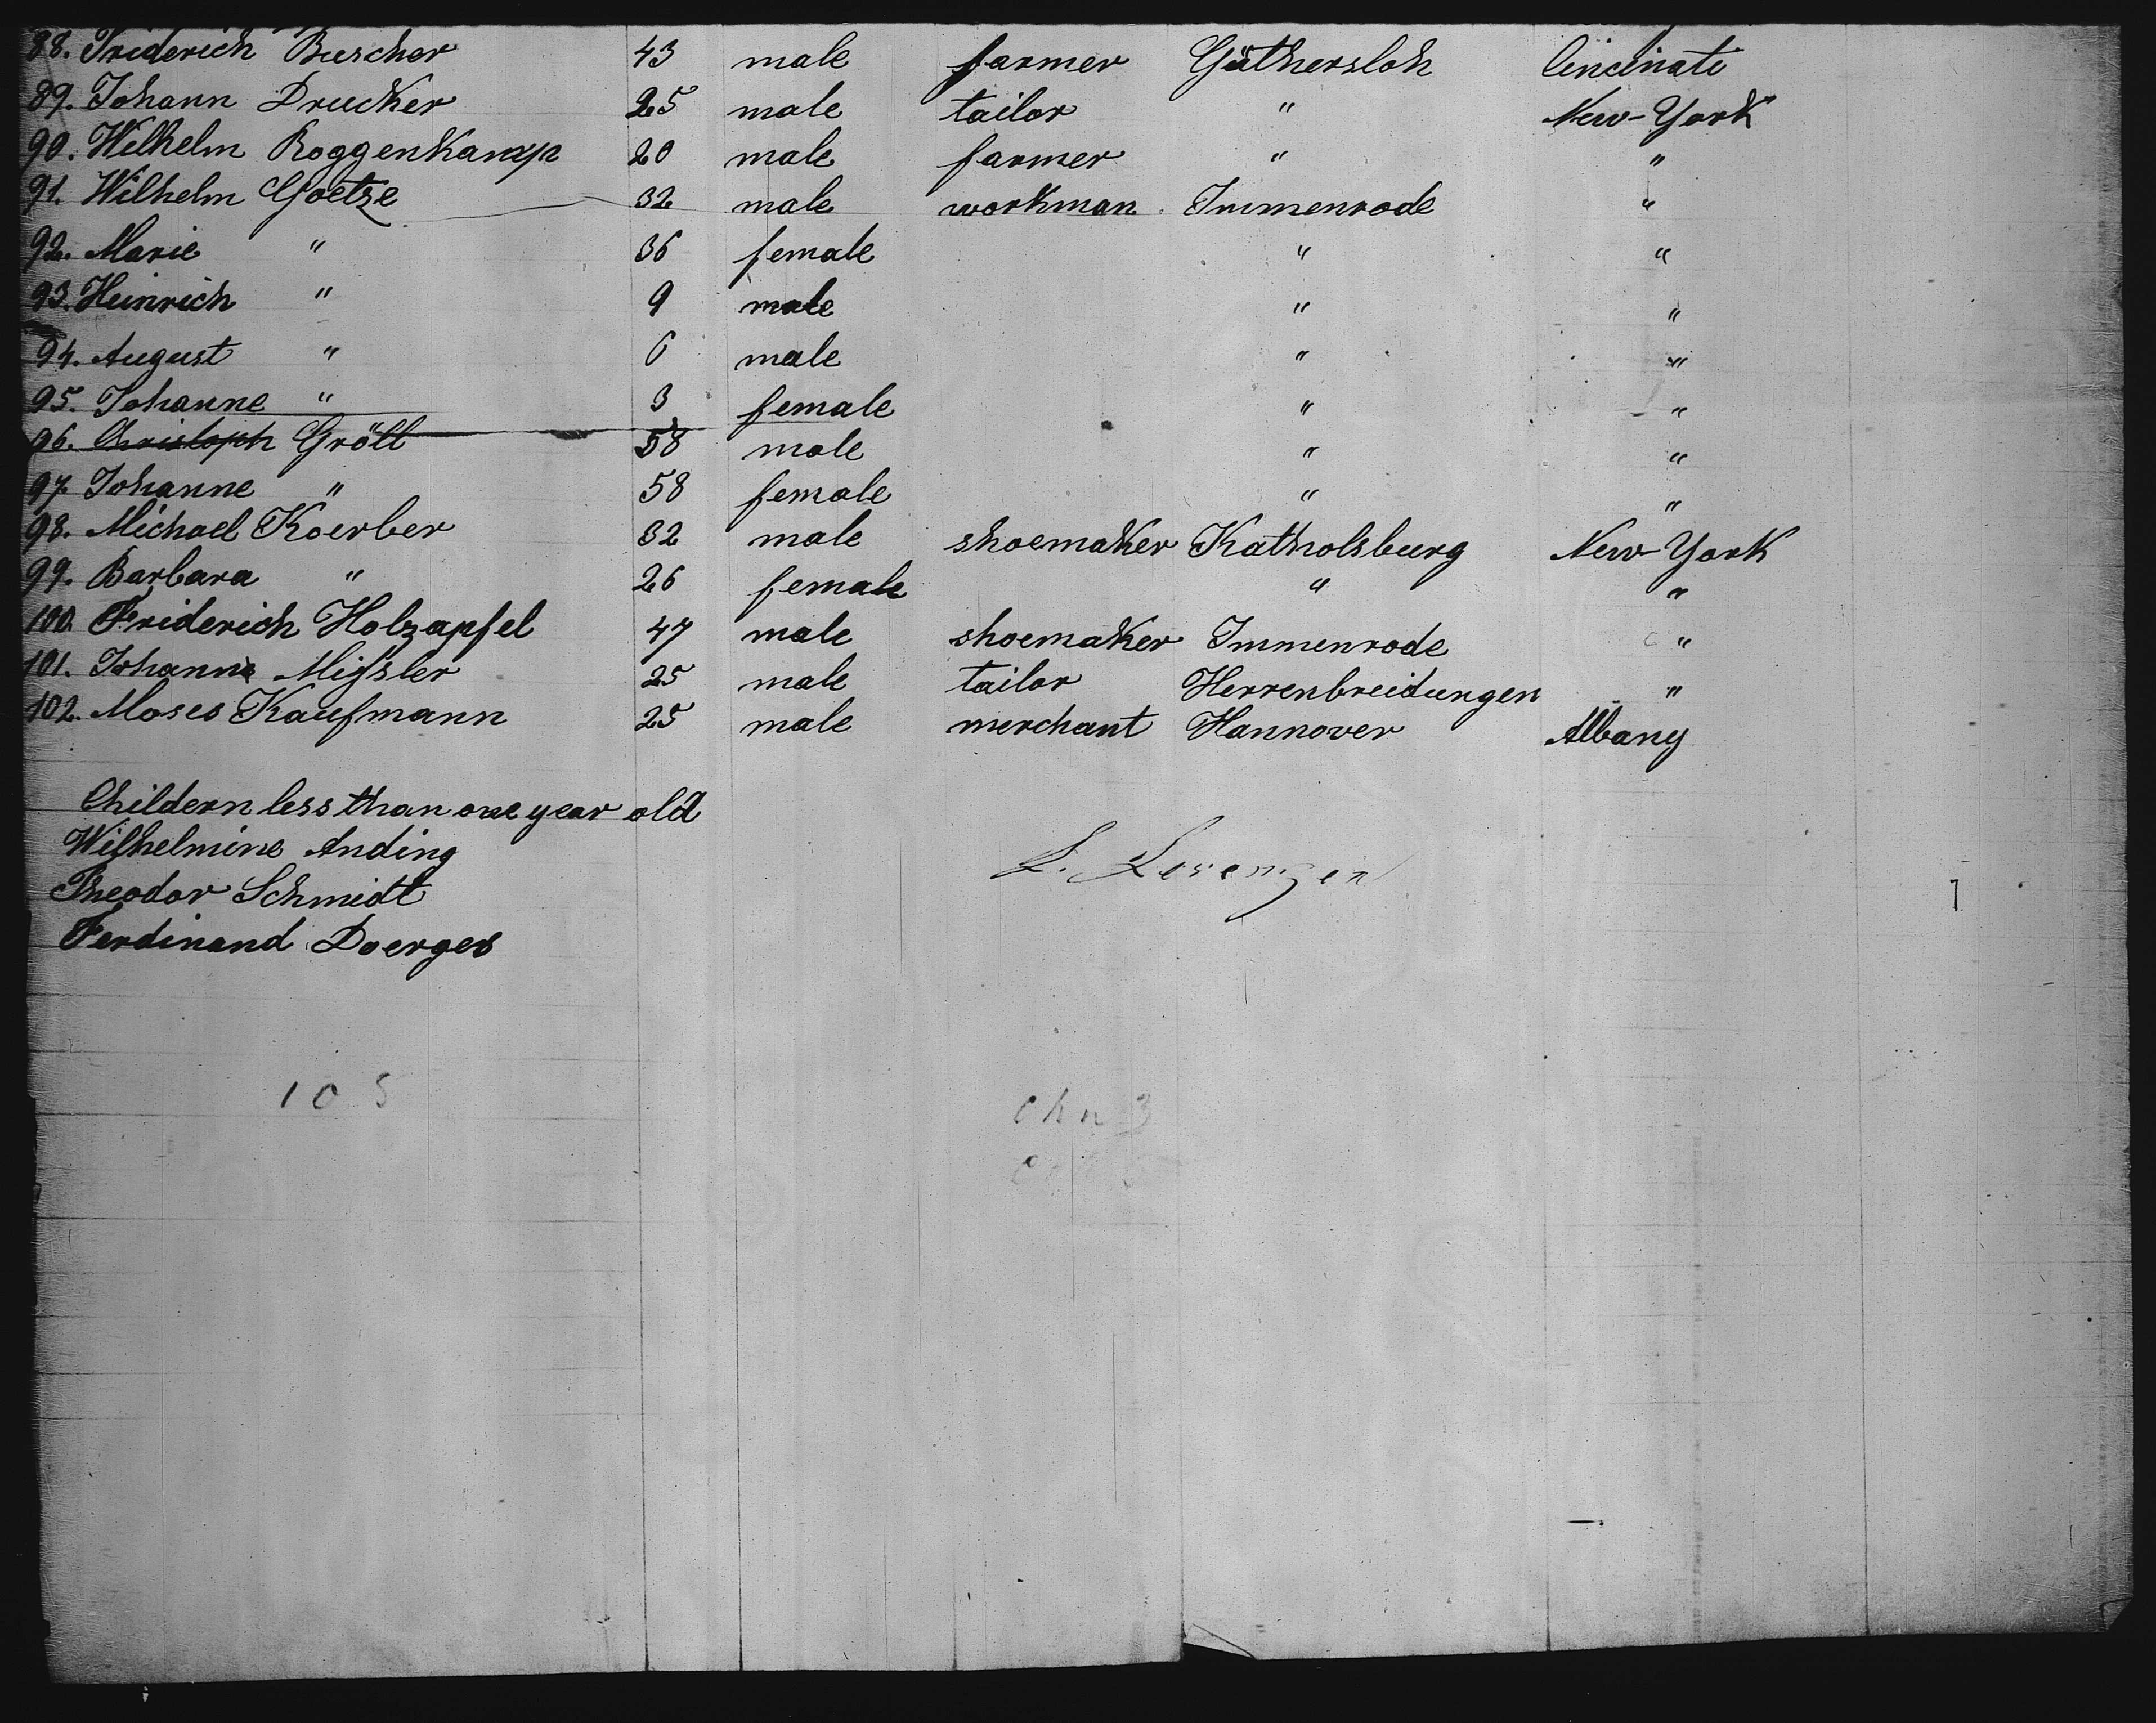 88. Friderich Buscher 43 male farmer Güthersloh Cincinati
89. Johann Drucker 25 male tailor " New-York
90. Wilhelm Roggenkamp 20 male farmer " "
91. Wilhelm Goetze 32 male workman Immenrode "
92. Marie " 36 female " "
93. Heinrich " 9 male " "
94. August " 6 male " "
95. Johanne " 3 female " "
96. Christoph Gröll 58 male " "
97. Johanne " 58 female " "
98. Michael Koerber 32 male shoemaker Katholsburg New-York
99. Barbara " 26 female " "
100. Friderich Holzapfel 47 male shoemaker Immenrode "
101. Johann Migsler 25 male tailor Herrenbreidungen "
102. Moses Kaufmann 25 male merchant Hannover Albany
Childern less than one year old
Wilhelmine Anding
L. Lorenzen
Theodor Schmidt
Ferdinand Doerges
105
chn 3